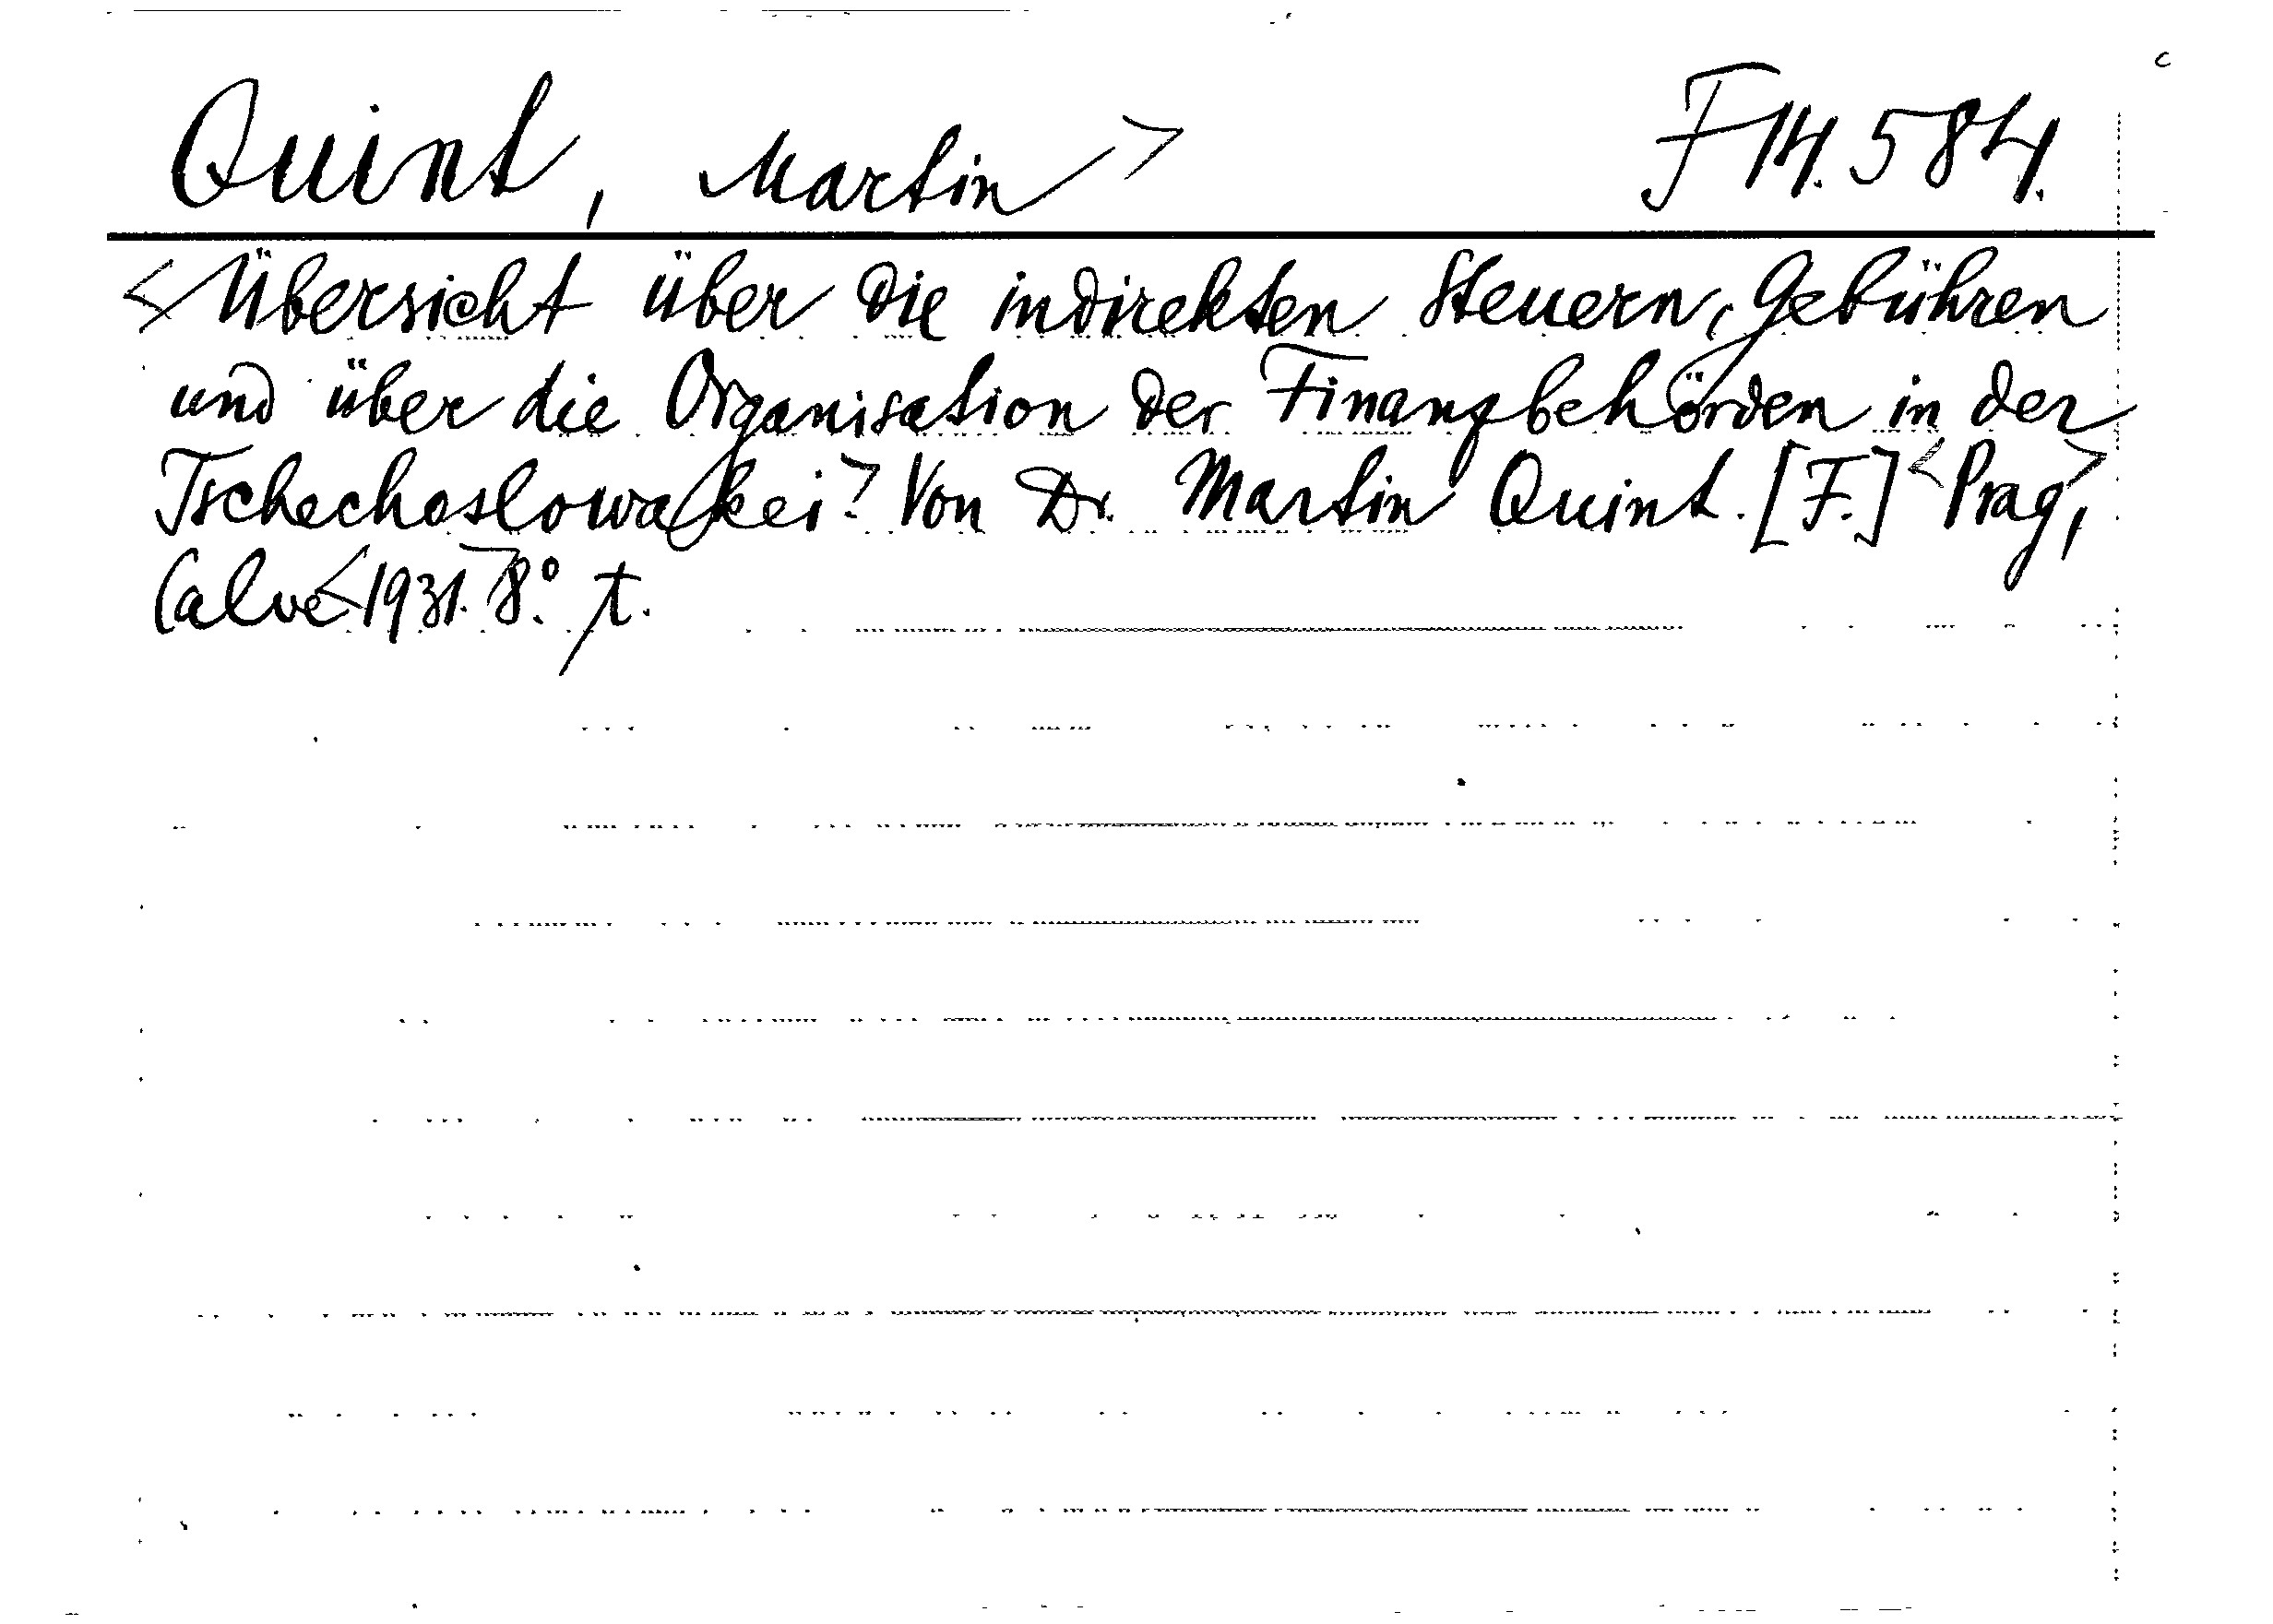 Quint, Martin> F 14.584.
<Übersicht über die indirekten Steuern, Gebühren
und über die Organisation der Finanzbehörden in der
Tschechoslowakei> Von Dr. Martin Quint. [F.] <Prag>,
Calve <1931.> 8°. t.